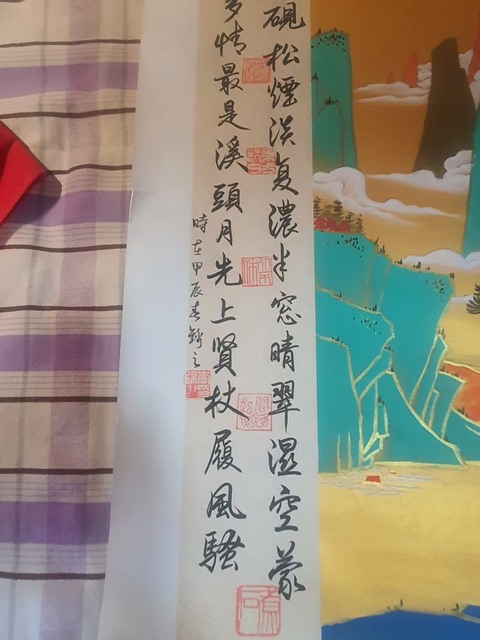 硯松煙淡复濃半窓晴翠湿空蒙
多情最是溪頭月先上賢杖履風騷
時在甲辰春之